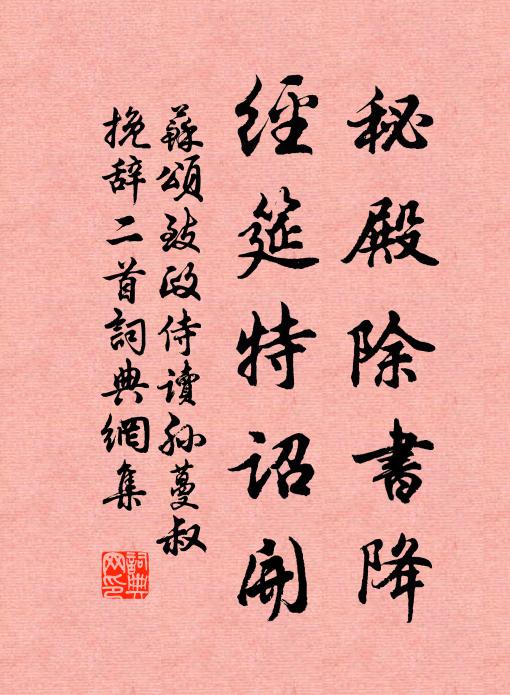 秘殿除書降
經筵特詔開
蘇頌致政侍讀孙蔓叔
挽辞二首詞典網集
詞典网印